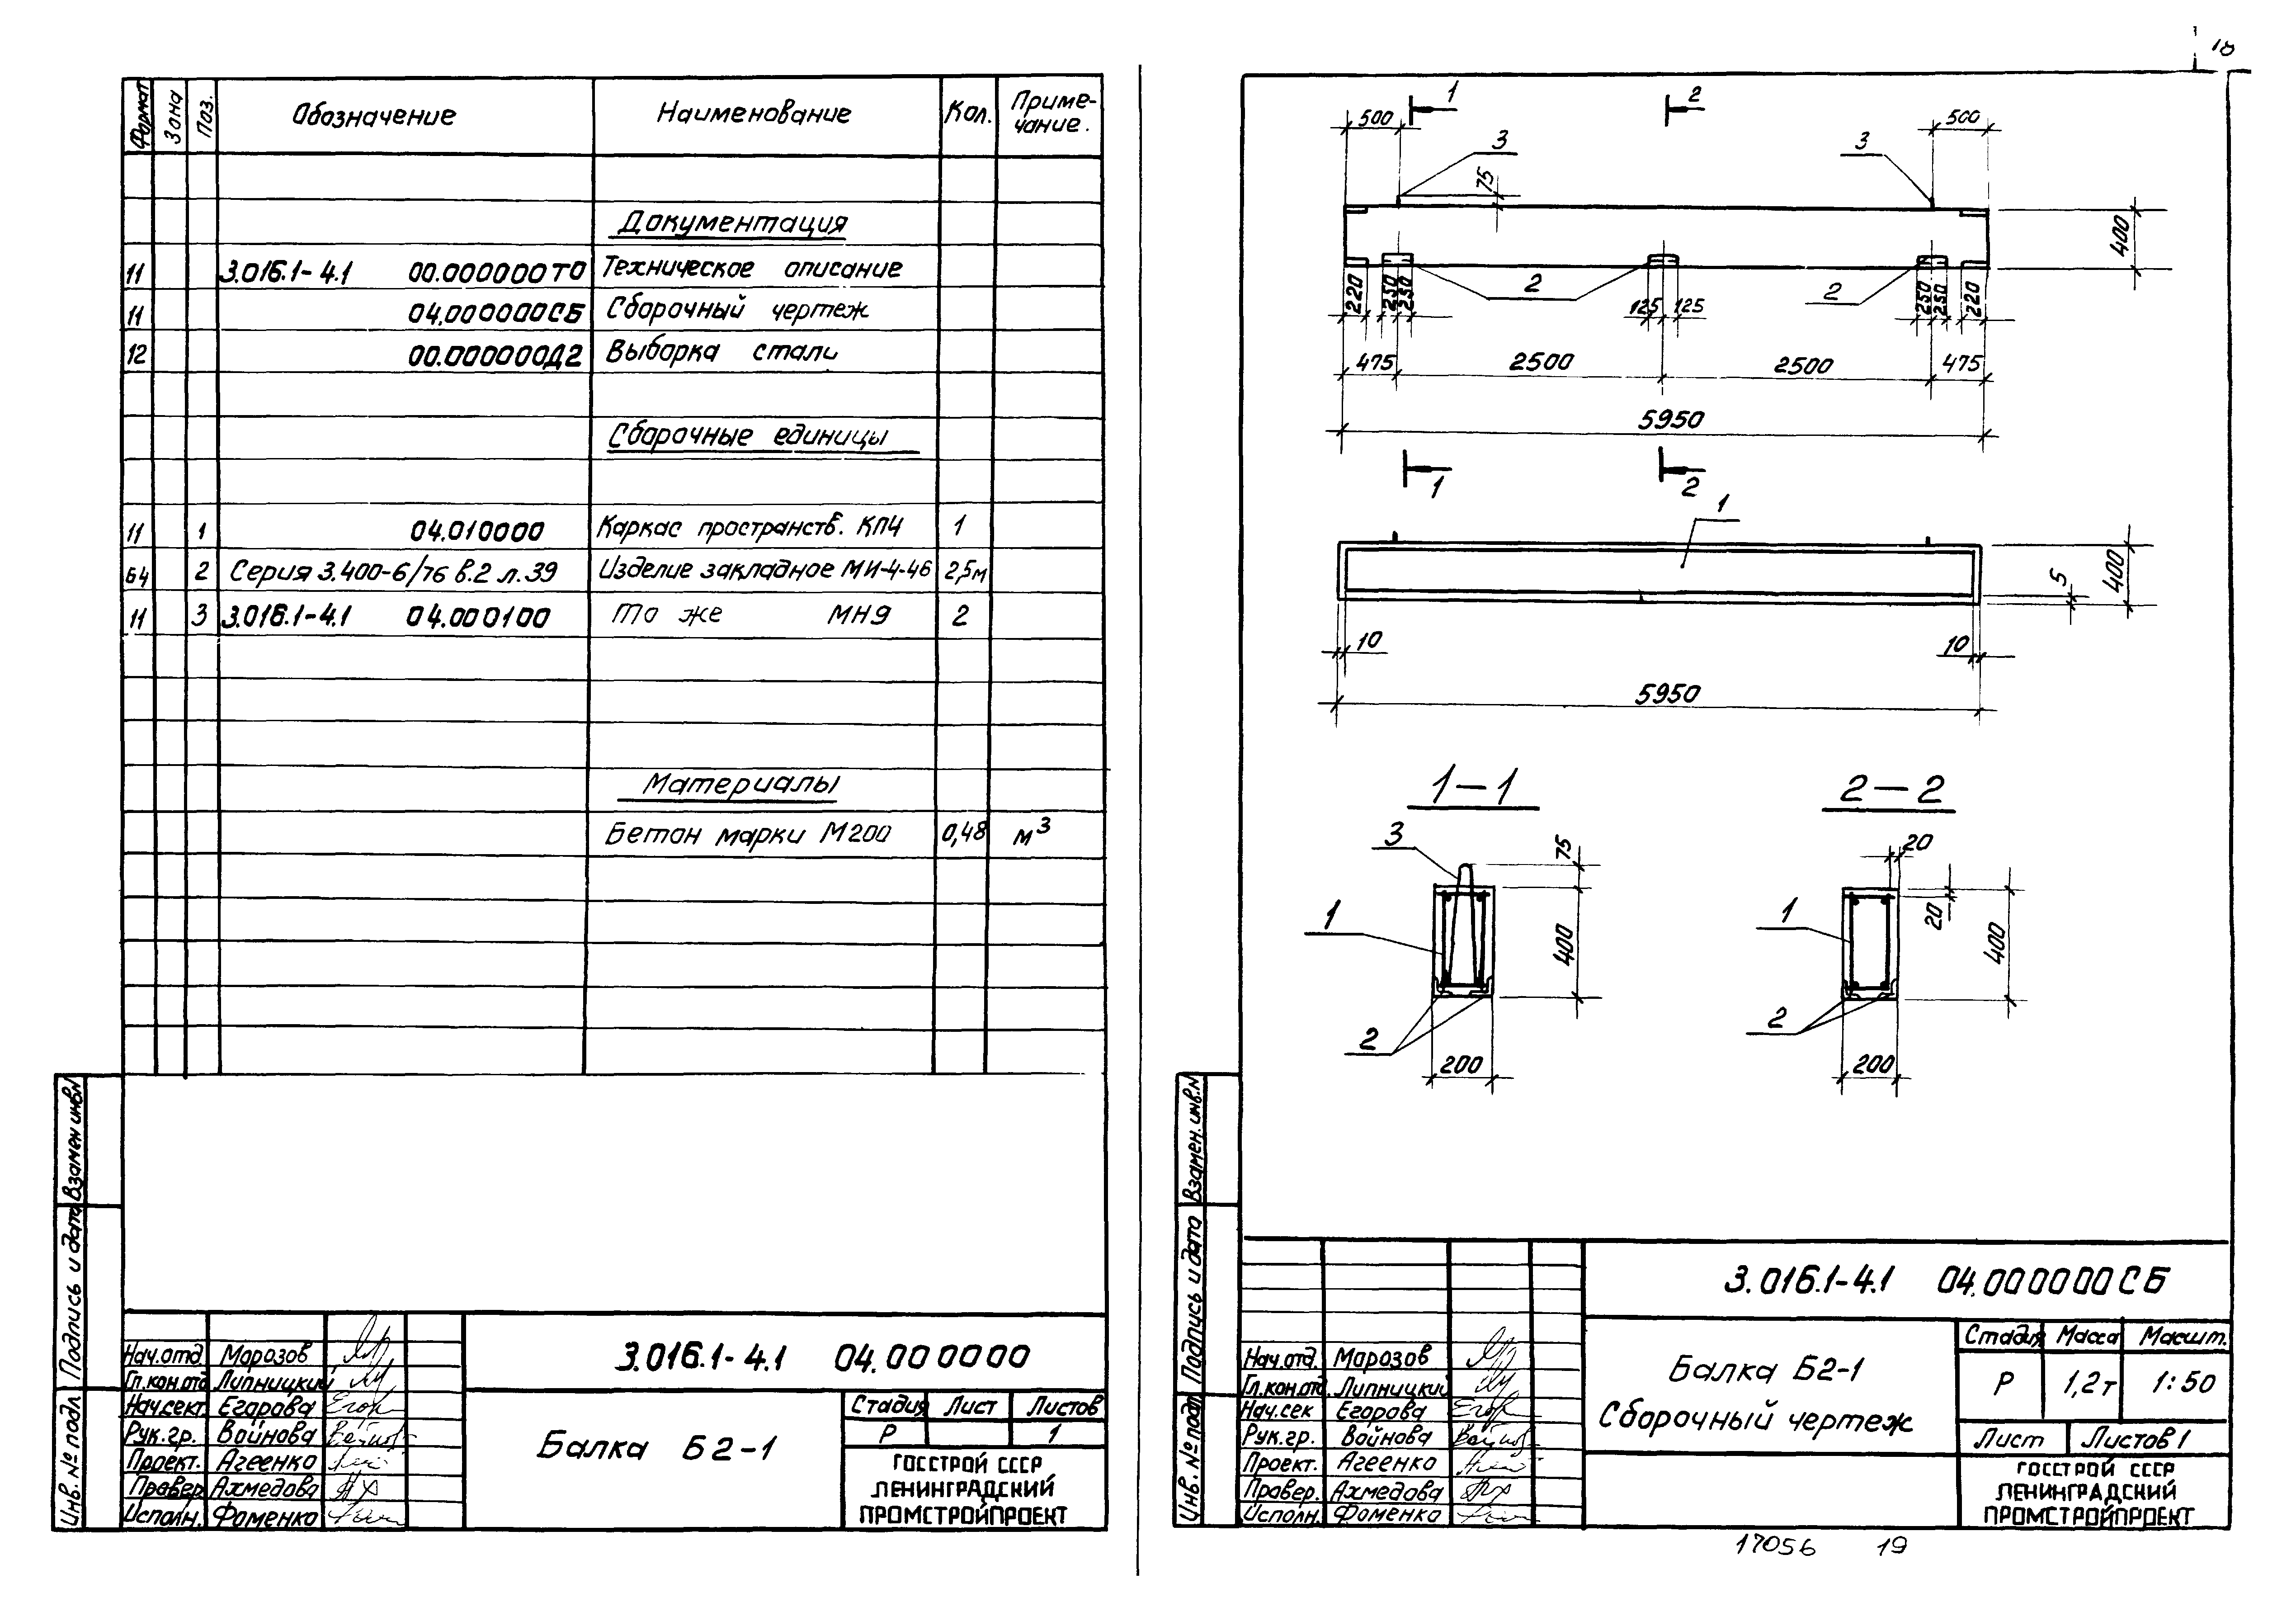 18
Формат Зона Поз. Обозначение Наименование Кол. Приме-
чание.
Документация
11 3.016.1-4.1 00.000000ТО Техническое описание
11 04.000000СБ Сборочный чертеж
12 00.000000Д2 Выборка стали
Сборочные единицы
11 1 04.010000 Каркас пространств. КП4 1
Б4 2 Серия 3.400-6/76 в.2 л.39 Изделие закладное МИ-4-46 2,5м
11 3 3.016.1-4.1 04.000100 То же МН9 2
Материалы
Бетон марки М200 0,48 м3
Взамен инв.N
Подпись и дата
Инв. № подл.
3.016.1-4.1 04.000000
Нач.отд. Марозов
Гл.кон.отд Липницкий
Нач.сект Егорова
Рук.гр. Войнова
Проект. Агеенко
Провер. Ахмедова
Исполн. Фоменко
Балка Б2-1
Стадия Лист Листов
Р 1
ГОССТРОЙ СССР
ЛЕНИНГРАДСКИЙ
ПРОМСТРОЙПРОЕКТ
1 2
500 500
3 3
75
400
2 2
220 250 250 125 125 250 250 220
475 2500 2500 475
5950
1 2
1
5 400
10 10
5950
1-1 2-2
3 75 20
1 400 1 20 400
2 2
200 200
Взамен. инв.N
Подпись и дата
Инв. № подл
3.016.1-4.1 04.000000СБ
Нач.отд. Марозов
Гл.кон.отд. Липницкий
Нач.сек Егорова
Рук.гр. Войнова
Проект. Агеенко
Провер. Ахмедова
Исполн. Фоменко
Балка Б2-1
Сборочный чертеж
Стадия Масса Масшт.
Р 1,2т 1:50
Лист Листов 1
ГОССТРОЙ СССР
ЛЕНИНГРАДСКИЙ
ПРОМСТРОЙПРОЕКТ
17056 19